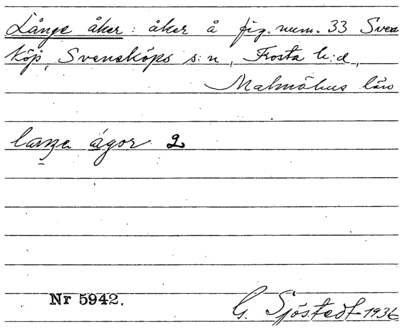 Långe åker : åker å fig. num. 33 Svens
köp, Svensköps s:n, Frosta h:d,
Malmöhus län
ágor 2
Nr 5942.
G. Sjöstedt 1936